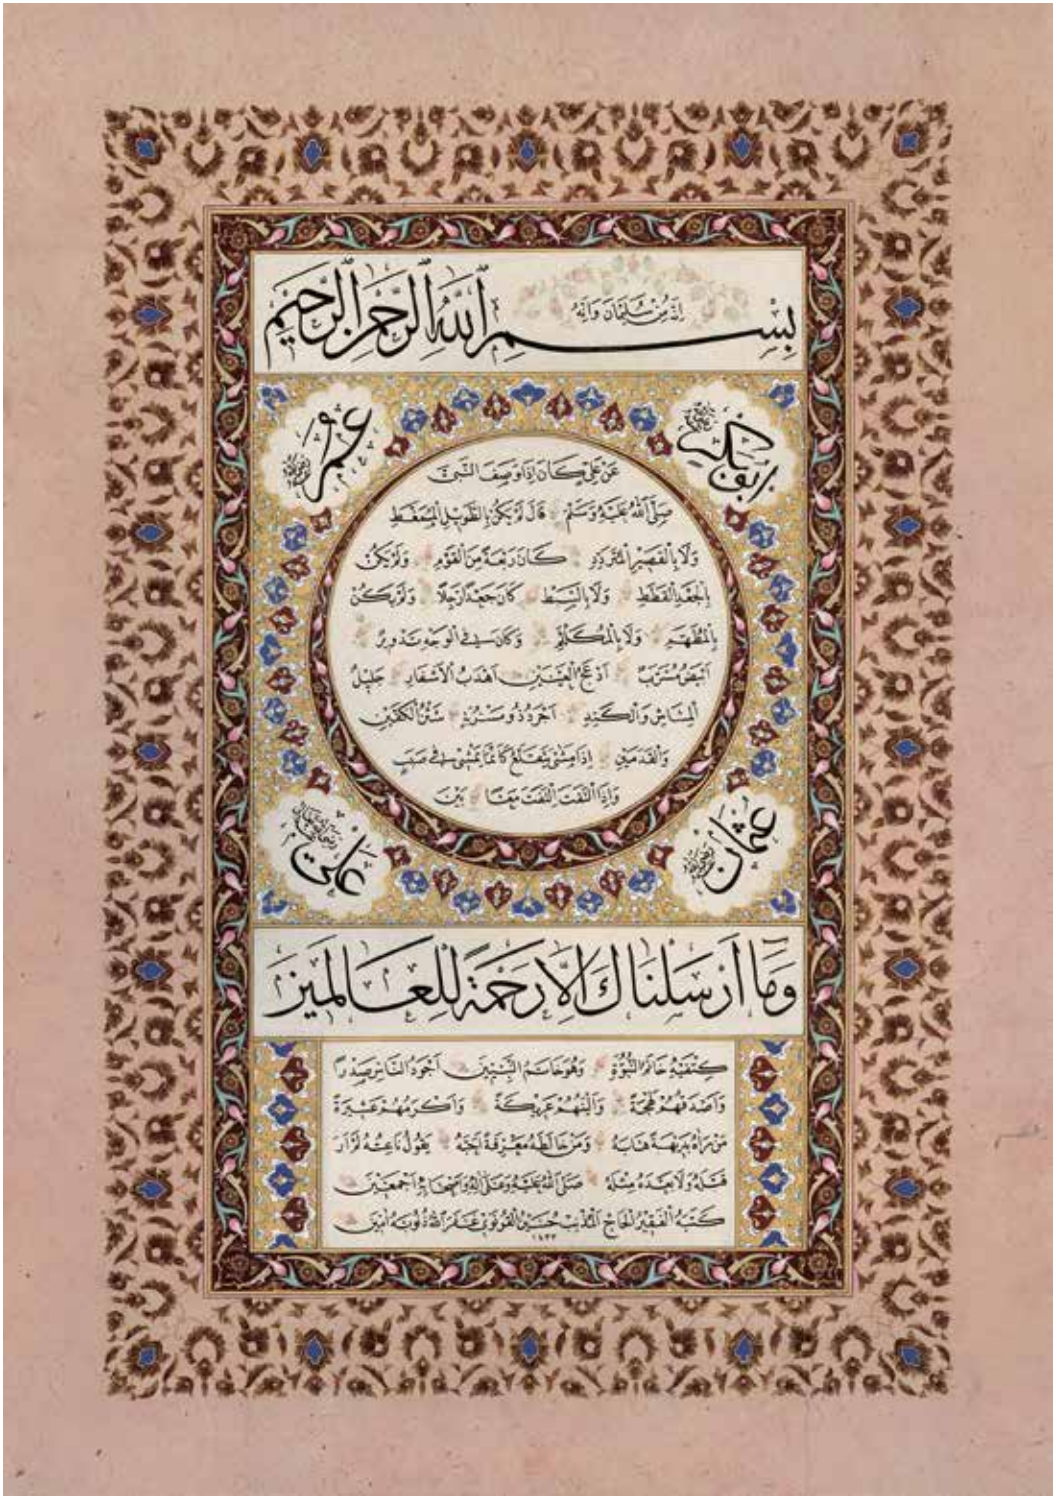 إنه من سليمان وإنه
بسم الله الرحمن الرحيم
أبو بكر
عمر
عن علي كان إذا وصف النبي
صلى الله عليه وسلم قال لم يكن بالطويل الممغط
ولا بالقصير المتردد كان ربعة من القوم ولم يكن
بالجعد القطط ولا بالسبط كان جعدا رجلا ولم يكن
بالمطهم ولا بالمكلثم وكان في الوجه تدوير
أبيض مشرب أدعج العينين أهدب الأشفار جليل
المشاش والكتد أجرد ذو مسربة شثن الكفين
والقدمين إذا مشى يتقلع كأنما يمشي في صبب
وإذا التفت التفت معا بين
عثمان
علي
وما أرسلناك إلا رحمة للعالمين
كتفيه خاتم النبوة وهو خاتم النبيين أجود الناس صدرا
وأصدقهم لهجة وألينهم عريكة وأكرمهم عشيرة
من رآه بديهة هابه ومن خالطه معرفة أحبه يقول ناعته لم أر
قبله ولا بعده مثله صلى الله عليه وعلى آله وأصحابه أجمعين
كتبه الفقير الحاج المذنب حسين القونوي غفر الله ذنوبه آمين